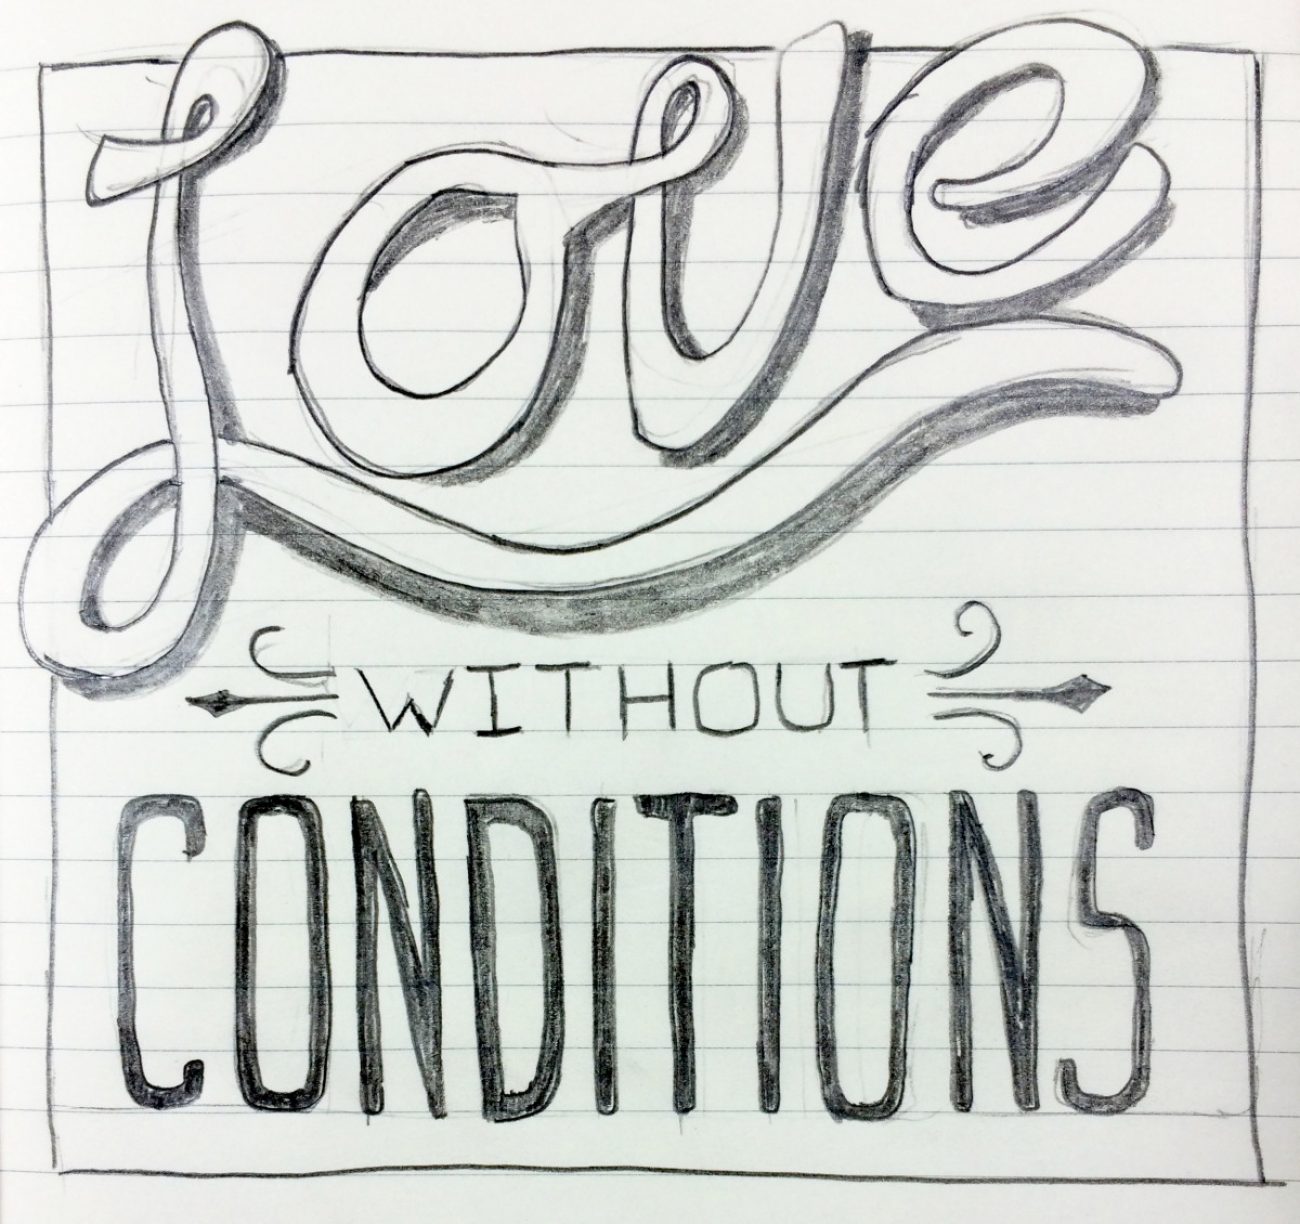 Love
WITHOUT
CONDITIONS